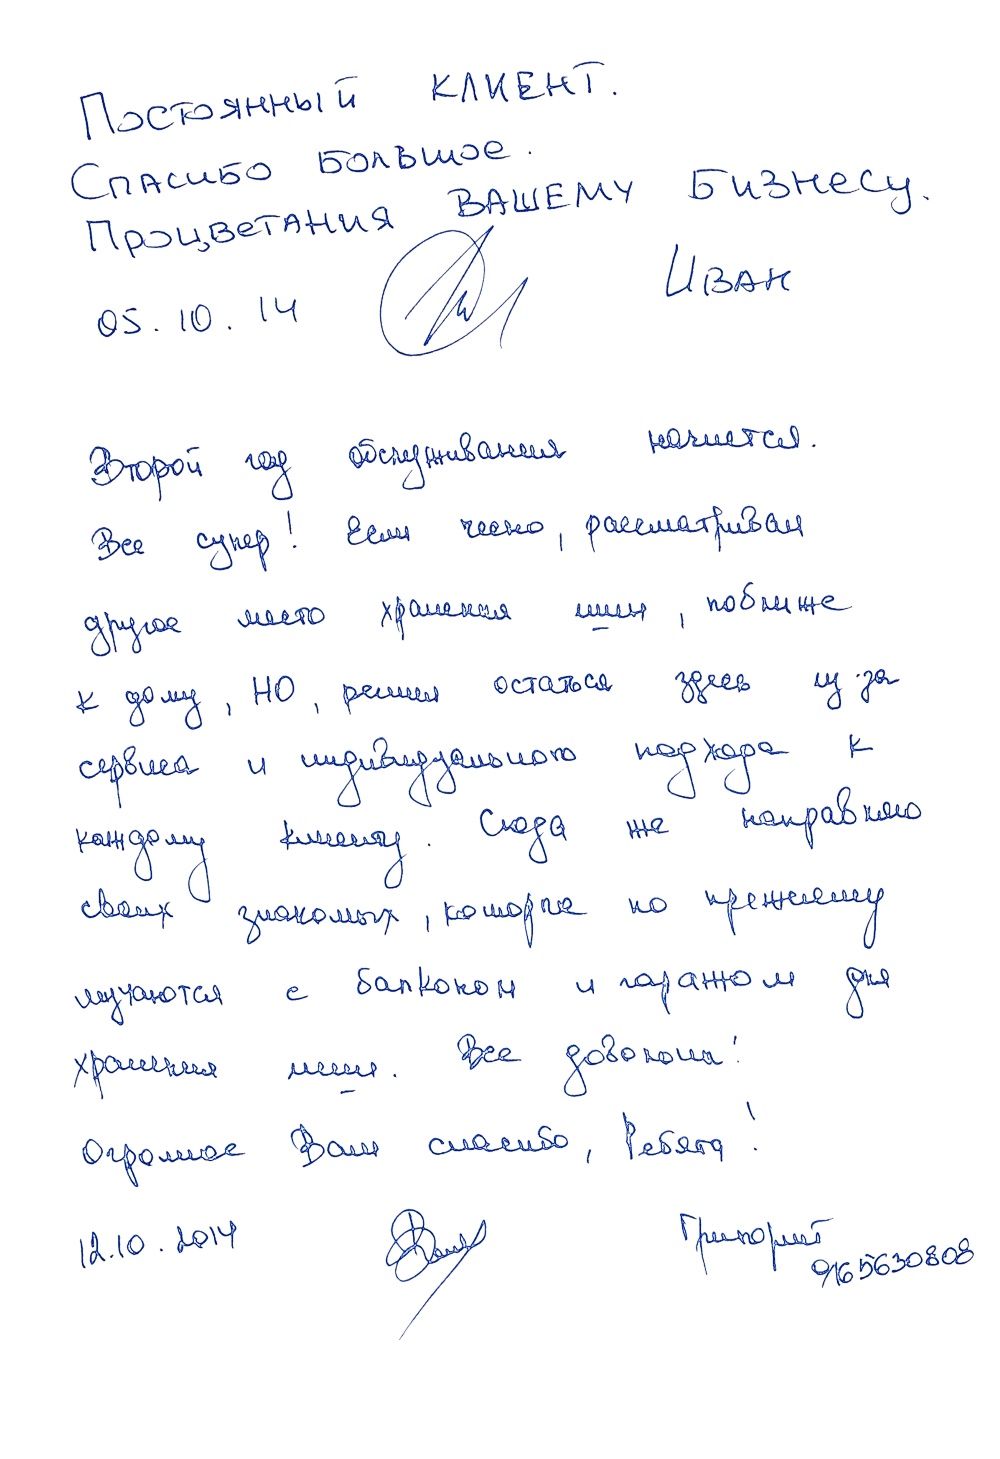 Постоянный клиент.
Спасибо большое.
Процветания вашему бизнесу.
Иван
05.10.14
Второй год обслуживания начнется.
Все супер! Если чесно, рассматривал
другое место хранения шин, поближе
к дому, НО, решил остаться здесь из-за
сервиса и индивидуального подхода к
каждому клиенту. Сюда же направляю
своих знакомых, которые по прежнему
мучаются с балконом и гаражом для
хранения шин. Все довольны!
Огромное Вам спасибо, Ребята!
12.10.2014
Григорий
9165630808